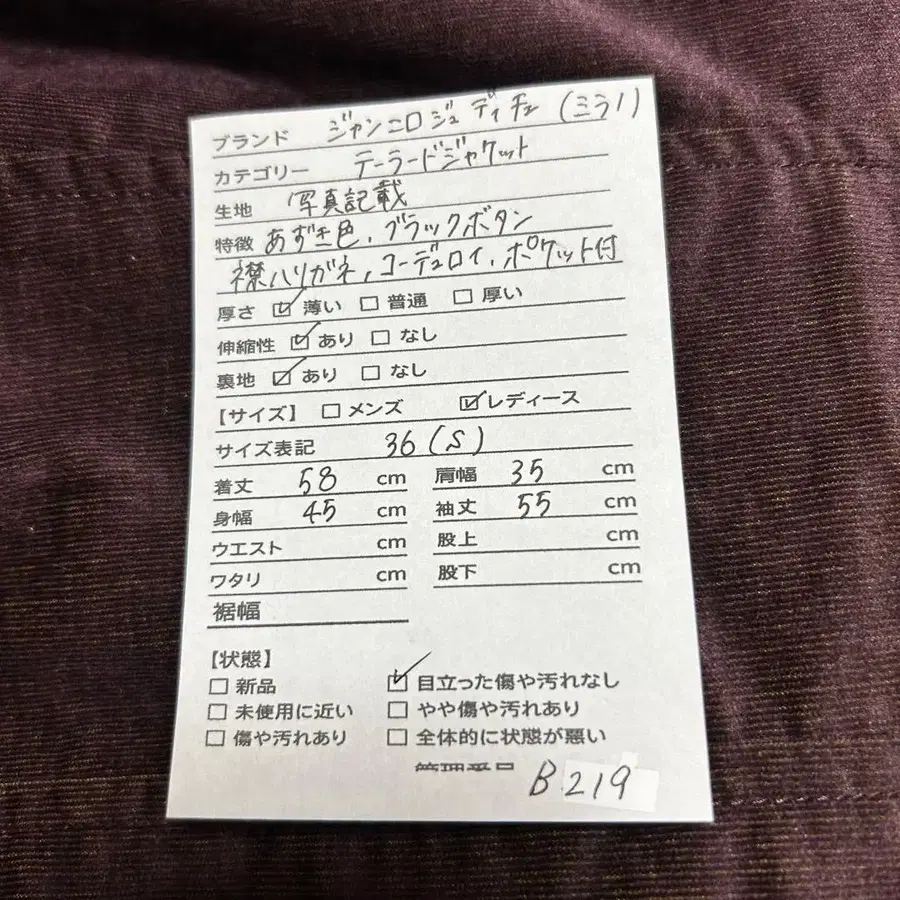 ブランド ジャンニロジュディチェ (ミラノ)
カテゴリー テーラードジャケット
生地 写真記載
特徴 あずき色、ブラックボタン
襟ハリガネ、コーデュロイ、ポケット付
厚さ ☑ 薄い ☐ 普通 ☐ 厚い
伸縮性 ☑ あり ☐ なし
裏地 ☑ あり ☐ なし
【サイズ】 ☐ メンズ ☑ レディース
サイズ表記 36 (S)
着丈 58 cm 肩幅 35 cm
身幅 45 cm 袖丈 55 cm
ウエスト cm 股上 cm
ワタリ cm 股下 cm
裾幅
【状態】
☐ 新品 ☑ 目立った傷や汚れなし
☐ 未使用に近い ☐ やや傷や汚れあり
☐ 傷や汚れあり ☐ 全体的に状態が悪い
管理番号 B219